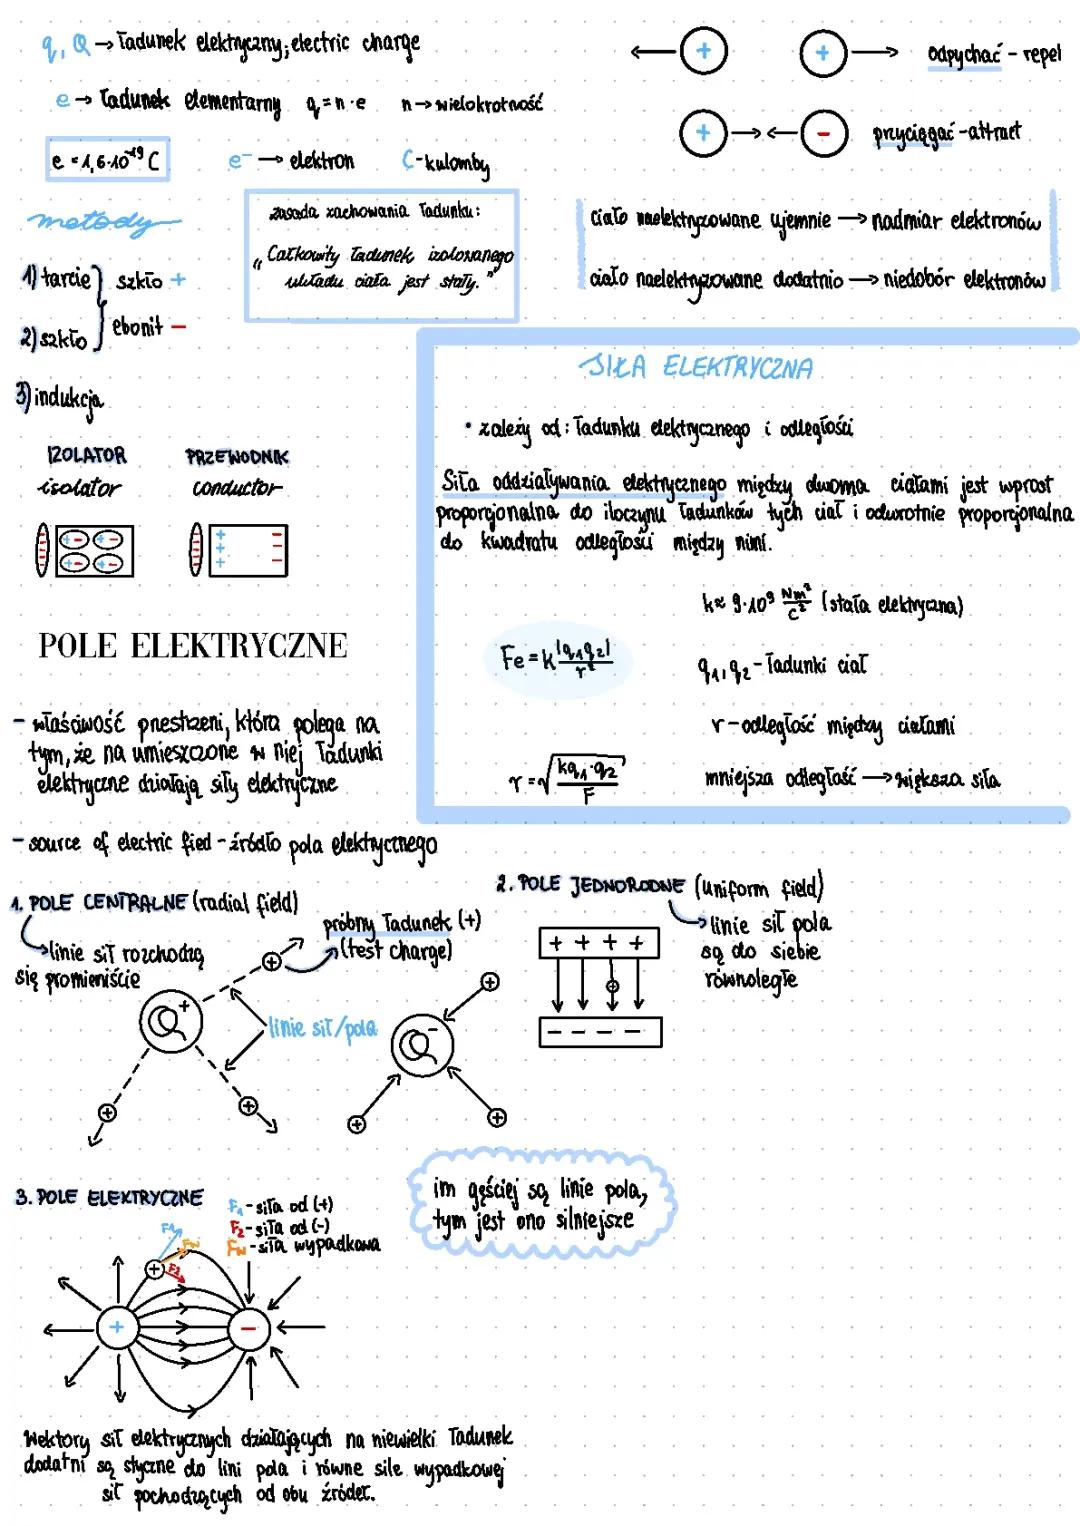 q, Q → Ładunek elektryczny; electric charge
e → Ładunek elementarny q = n·e n → wielokrotność
e = 1,6·10⁻¹⁹ C e⁻ → elektron C - kulomby
+ + odpychać - repel
+ - przyciągać - attract
metody
1) tarcie szkło +
2) szkło ebonit -
3) indukcja
zasada zachowania ładunku:
„Całkowity ładunek izolowanego
układu ciała jest stały."
ciało naelektryzowane ujemnie → nadmiar elektronów
ciało naelektryzowane dodatnio → niedobór elektronów
IZOLATOR PRZEWODNIK
isolator conductor
SIŁA ELEKTRYCZNA
• zależy od: ładunku elektrycznego i odległości
Siła oddziaływania elektrycznego między dwoma ciałami jest wprost
proporcjonalna do iloczynu ładunków tych ciał i odwrotnie proporcjonalna
do kwadratu odległości między nimi.
k ≈ 9·10⁹ Nm²/C² (stała elektryczna)
Fe = k |q₁q₂|/r²
q₁, q₂ - ładunki ciał
r - odległość między ciałami
r = √(kq₁·q₂/F)
mniejsza odległość → większa siła
POLE ELEKTRYCZNE
- właściwość przestrzeni, która polega na
tym, że na umieszczone w niej ładunki
elektryczne działają siły elektryczne
- source of electric fied - źródło pola elektrycznego
1. POLE CENTRALNE (radial field)
linie sił rozchodzą
się promieniście
próbny ładunek (+)
(test charge)
linie sił/pola
Q + Q -
2. POLE JEDNORODNE (uniform field)
linie sił pola
są do siebie
równoległe
+ + + +
- - - -
3. POLE ELEKTRYCZNE
F₁ - siła od (+)
F₂ - siła od (-)
Fw - siła wypadkowa
F₁ Fw
F₂
+ -
im gęściej są linie pola,
tym jest ono silniejsze
Wektory sił elektrycznych działających na niewielki ładunek
dodatni są styczne do lini pola i równe sile wypadkowej
sił pochodzących od obu źródeł.